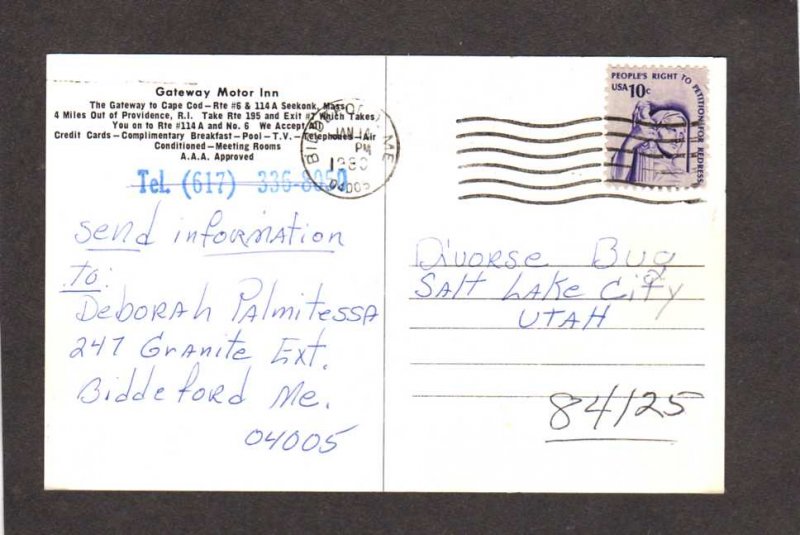 Gateway Motor Inn
The Gateway to Cape Cod — Rte #6 & 114A Seekonk, Mass.
4 Miles Out of Providence, R.I. Take Rte 195 and Exit #7 Which Takes
You on to Rte #114A and No. 6 We Accept All
Credit Cards — Complimentary Breakfast — Pool — T.V. — Telephones — Air
Conditioned — Meeting Rooms
A.A.A. Approved
Tel. (617) 336-8050
BIDDEFORD, ME
JAN 14
PM
1980
PEOPLE'S RIGHT TO PETITION FOR REDRESS
USA 10c
Send information
to:
Deborah Palmitessa
247 Granite Ext.
Biddeford Me.
04005
Divorse Bug
Salt Lake City
UTAH
84125